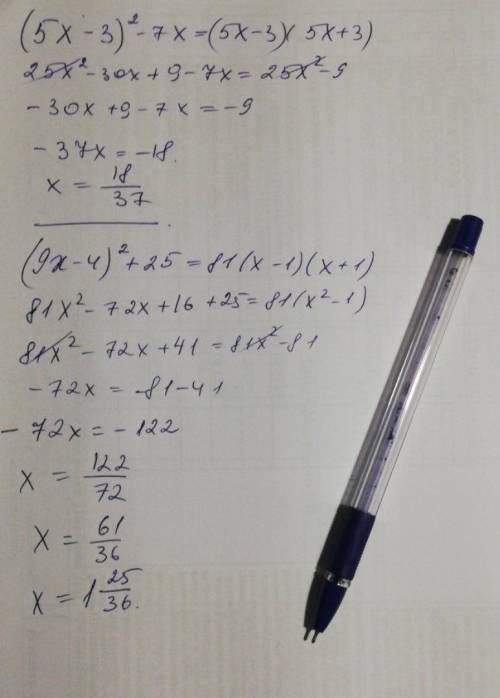 (5x - 3)² - 7x = (5x - 3)(5x + 3)
25x² - 30x + 9 - 7x = 25x² - 9
- 30x + 9 - 7x = - 9
- 37x = - 18.
x = 18/37
(9x - 4)² + 25 = 81(x - 1)(x + 1)
81x² - 72x + 16 + 25 = 81(x² - 1)
81x² - 72x + 41 = 81x² - 81
- 72x = - 81 - 41
- 72x = - 122
x = 122/72
x = 61/36
x = 1 25/36.